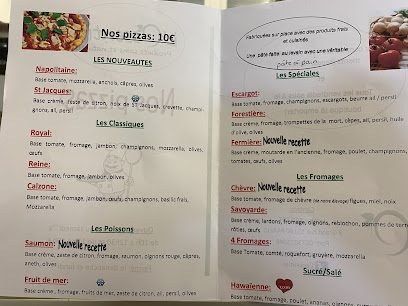 Nos pizzas: 10€
LES NOUVEAUTES
Napolitaine:
Base tomate, mozzarella, anchois, câpres, olives
St Jacques:
Base crème, zeste de citron, noix de ST Jacques, crevette, champignons, ail, persil
Les Classiques
Royal:
Base tomate, fromage, jambon, champignons, mozzarella, olives, œufs
Reine:
Base tomate, fromage, jambon, olives
Calzone:
Base tomate, fromage, jambon, œufs, champignons, basilic frais, Mozzarella
Les Poissons
Saumon: Nouvelle recette
Base crème, zeste de citron, fromage, saumon, oignons rouge, câpres, aneth, olives
Fruit de mer:
Base crème, fromage, fruits de mer, zeste de citron, ail, persil, olives
Fabriquées sur place avec des produits frais
et cuisinés
Une pâte faite au levain avec une véritable
pâte à pain
Les Spéciales
Escargot:
Base tomate, fromage, champignons, escargots, beurre (ail / persil)
Forestière:
Base crème, fromage, trompettes de la mort, cèpes, ail, persil, huile d'olive, olives
Fermière: Nouvelle recette
Base crème, moutarde en l'ancienne, fromage, poulet, champignons, tomates, œufs, olives
Les Fromages
Chèvre: Nouvelle recette
Base tomate, fromage, jambon, chèvre figues, miel, noix
Savoyarde:
Base crème, lardons, fromage, oignons, reblochon, pommes de terre, olives
4 Fromages:
Base Tomate, comté, roquefort, gruyère, mozzarella
Sucré/Salé
Hawaïenne:
Base tomate, fromage, poulet, ananas, olives